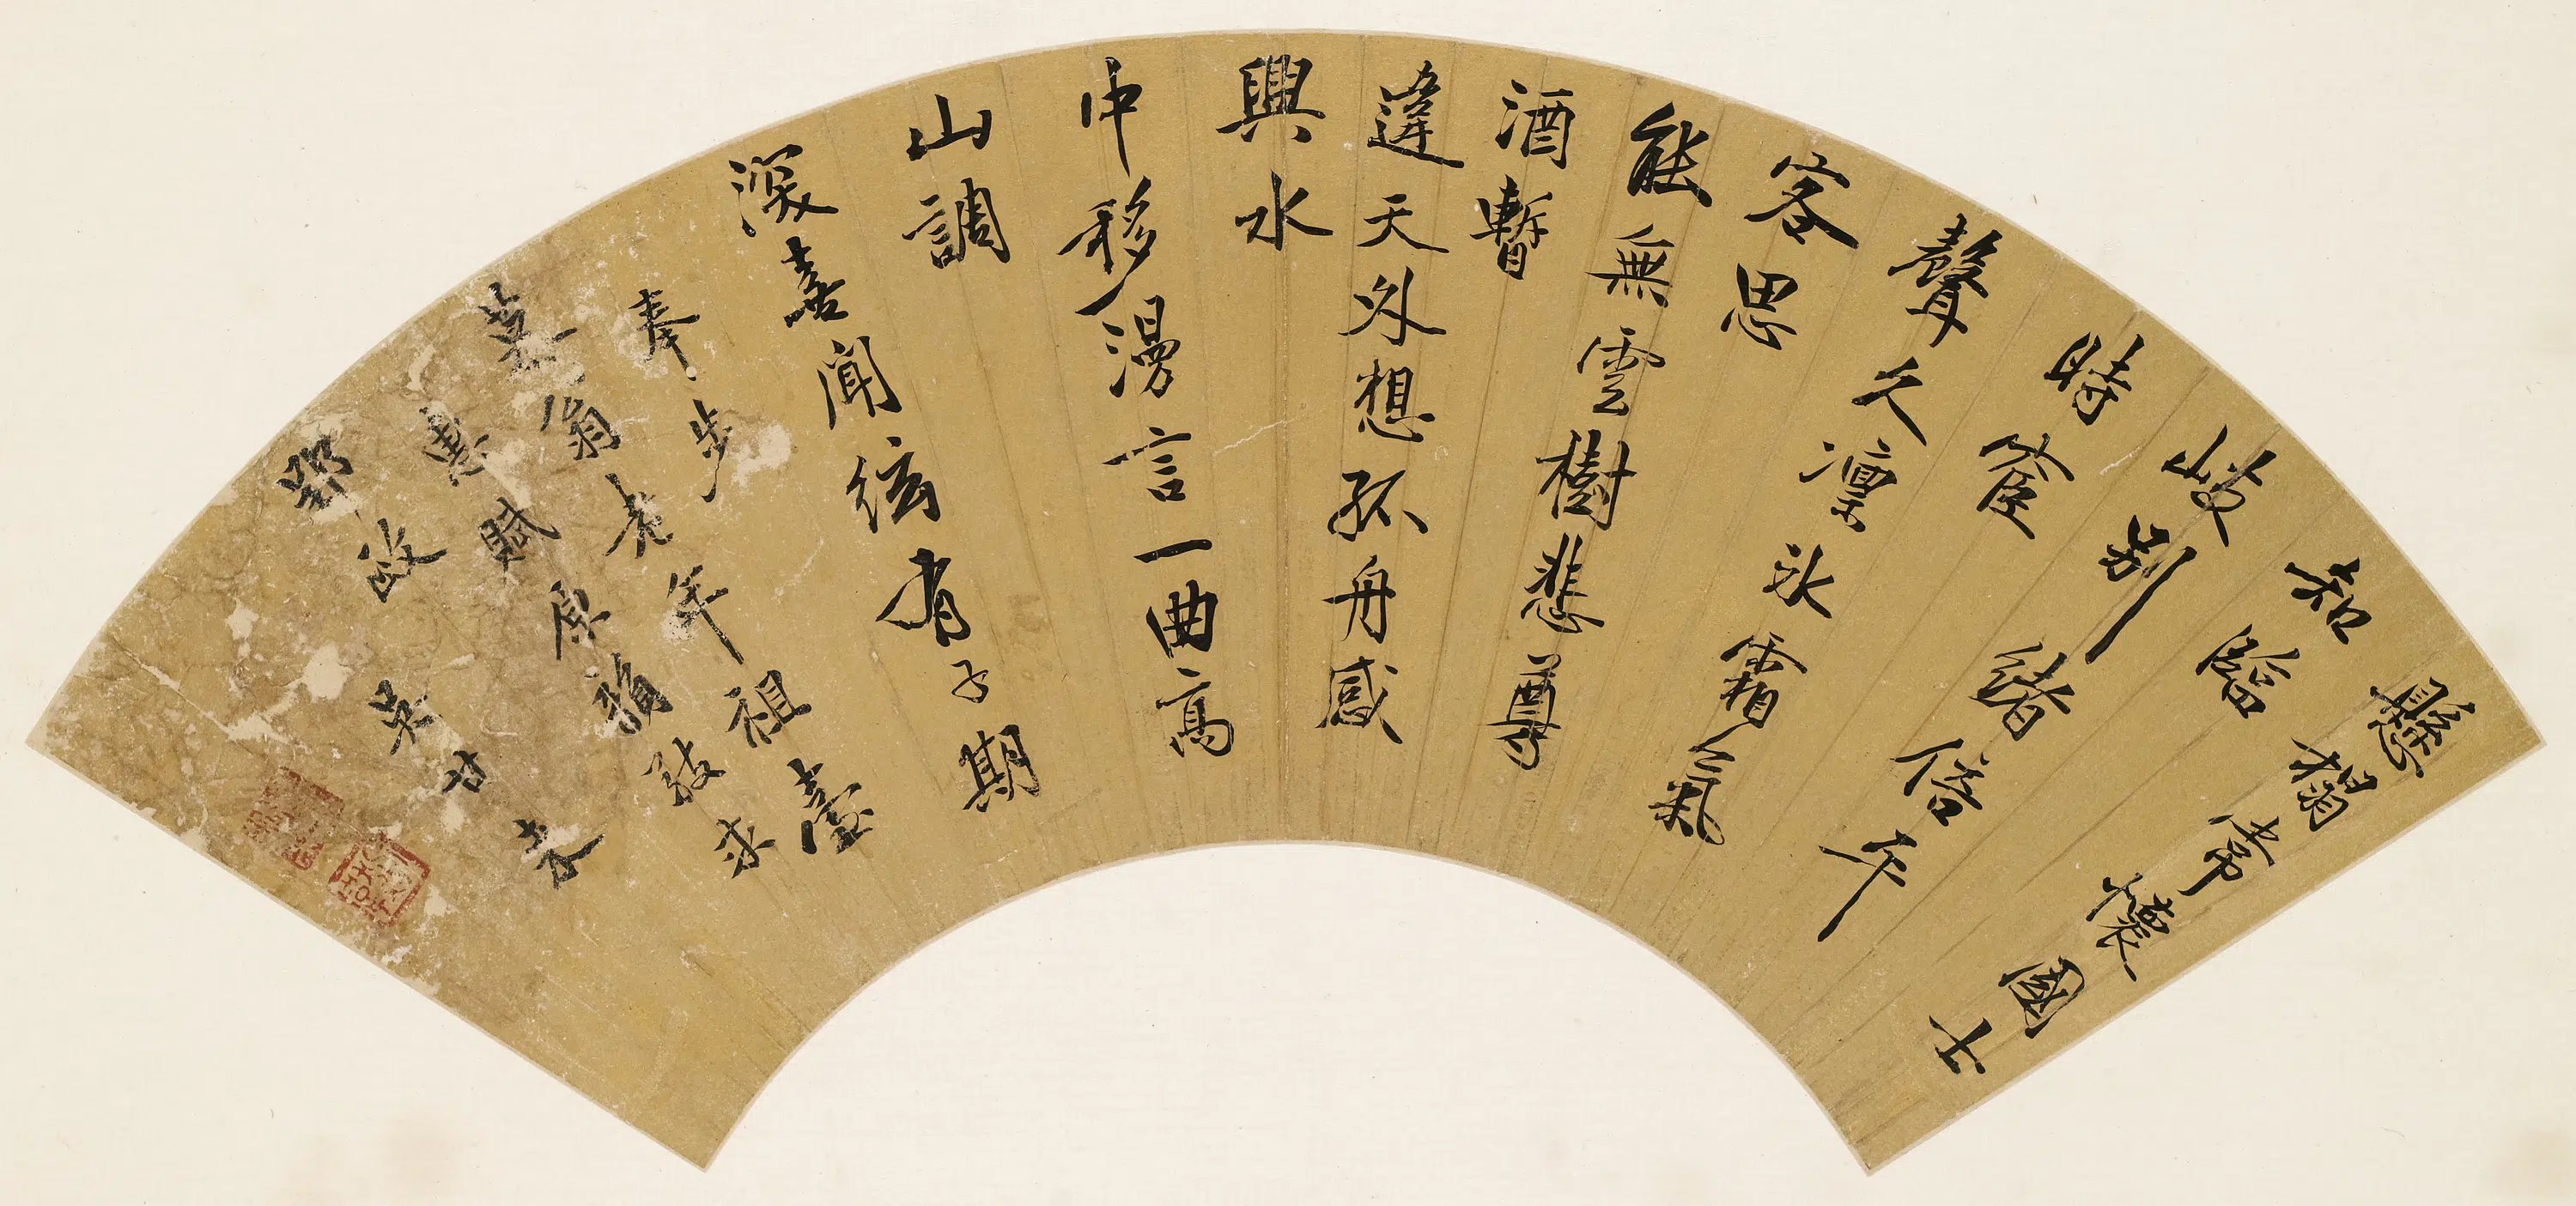 懸榻常懷國士
知臨
岐別緒倍平
時宦
聲久凜冰霜氣
客思
能無雲樹悲尊
酒暫
違天外想孤舟感
興水
中移漫言一曲高
山調
深喜聞絃有子期
奉步
翁老年祖臺
惠賦原韻敬求
郢政
吳甘來